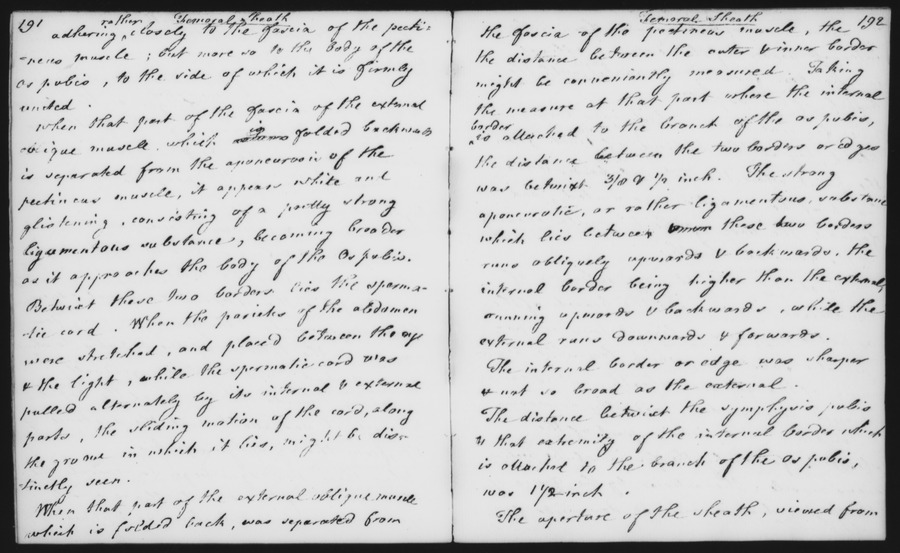 191 Femoral Sheath
rather
adhering, closely to the fascia of the pecti-
-neus muscle; but more so to the body of the
os pubis, to the side of which it is firmly
united.
When that part of the fascia of the external
oblique muscle which is folded backwards
is separated from the aponeurosis of the
pectineus muscle, it appears white and
glistening, consisting of a pretty strong
ligamentous substance, becoming broader
as it approaches the body of the Os pubis.
Betwixt these two borders lies the sperma-
-tic cord. When the parietes of the abdomen
were stretched, and placed between the eye
& the light, while the spermatic cord was
pulled alternately by its internal & external
parts, the sliding motion of the cord, along
the groove in which it lies, might be dis-
-tinctly seen.
When that part of the external oblique muscle
which is folded back, was separated from
Femoral Sheath 192
the fascia of the pectineus muscle, the
the distance between the outer & inner border
might be conveniently measured. Taking
the measure at that part where the internal
border
is attached to the branch of the os pubis,
the distance between the two borders or edges
was betwixt 3/8 & 1/2 inch. The strong
aponeurotic, or rather ligamentous, substance
which lies between these two borders
runs obliquely upwards & backwards, the
internal border being higher than the external,
running upwards & backwards, while the
external runs downwards & forwards.
The internal border or edge was sharper
& not so broad as the external.
The distance betwixt the symphysis pubis
& that extremity of the internal border which
is attached to the branch of the os pubis,
was 1 1/2 inch.
The aperture of the sheath, viewed from